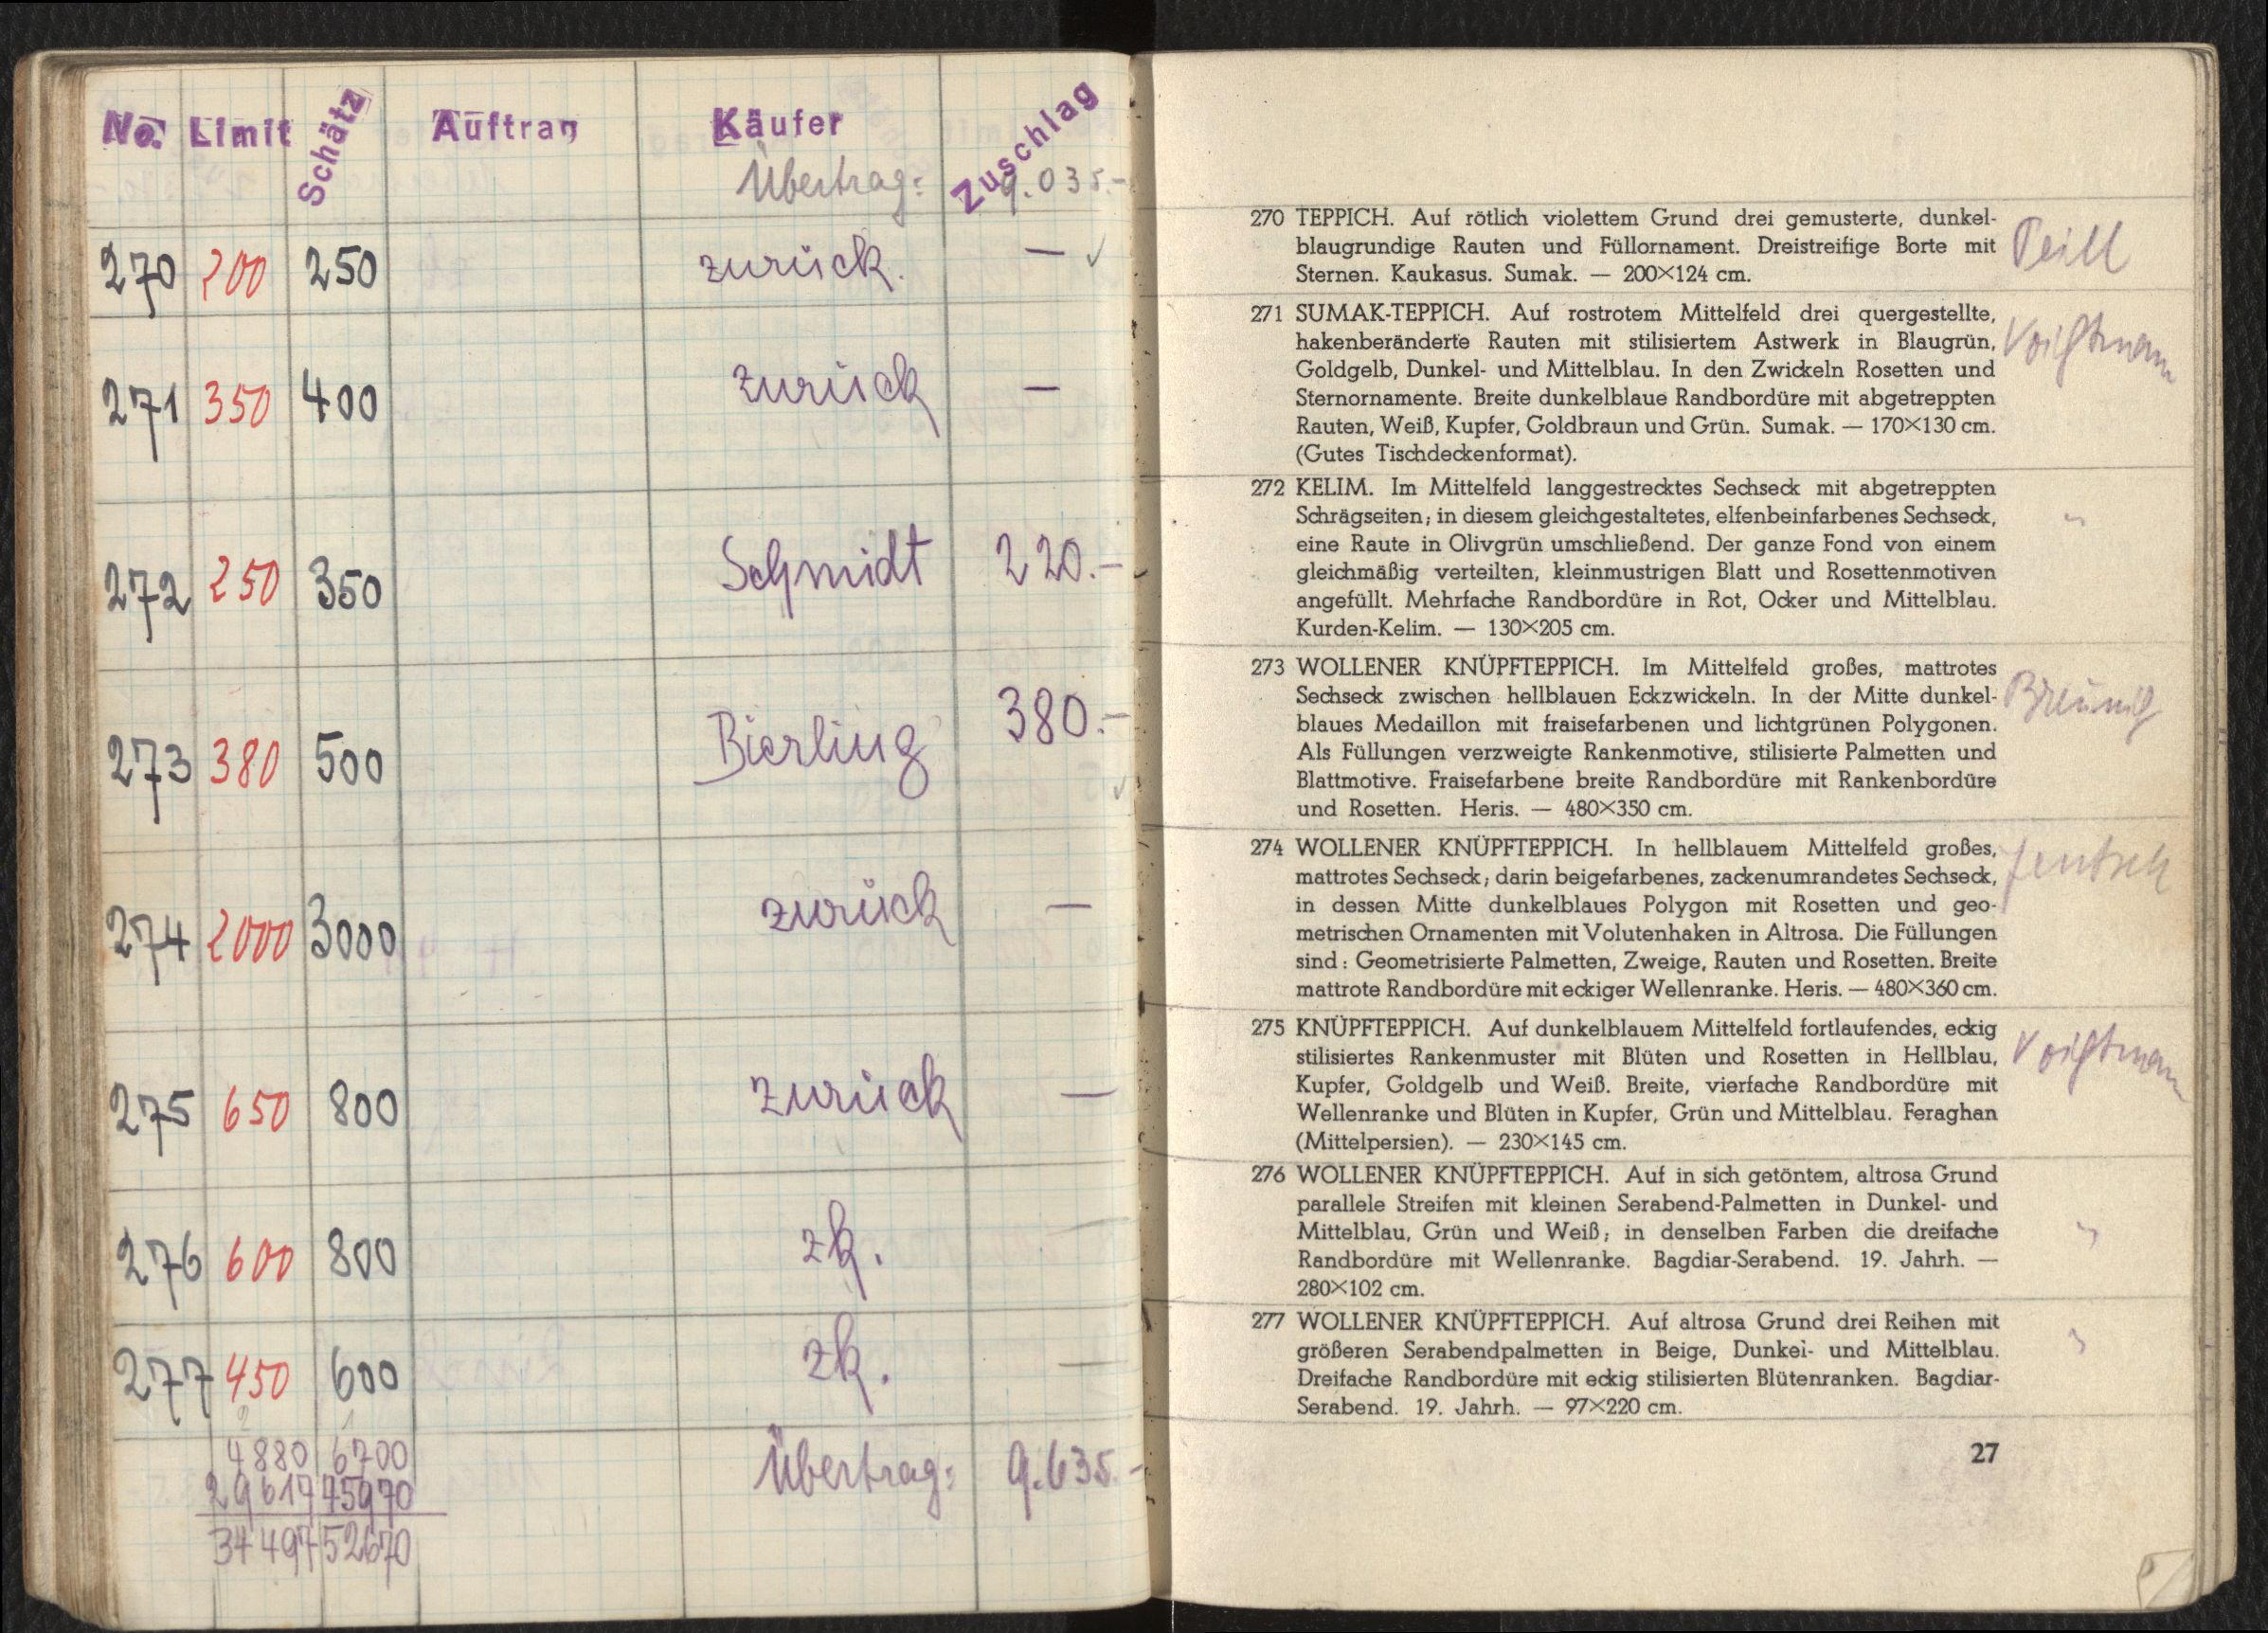 No. Limit Schätz Auftrag Käufer Zuschlag
Übertrag: 9.035.-
270 200 250 zurück. — ✓
271 350 400 zurück —
272 250 350 Schmidt 220.-
273 380 500 Bierling 380.-
274 2000 3000 zurück —
275 650 800 zurück —
276 600 800 zk. —
277 450 600 zk. —
4880 6700 Übertrag: 9.635.-
29617 45970
34497 52670
270 TEPPICH. Auf rötlich violettem Grund drei gemusterte, dunkel-
blaugrundige Rauten und Füllornament. Dreistreifige Borte mit
Sternen. Kaukasus. Sumak. — 200×124 cm.
Peill
271 SUMAK-TEPPICH. Auf rostrotem Mittelfeld drei quergestellte,
hakenberänderte Rauten mit stilisiertem Astwerk in Blaugrün,
Goldgelb, Dunkel- und Mittelblau. In den Zwickeln Rosetten und
Sternornamente. Breite dunkelblaue Randbordüre mit abgetreppten
Rauten, Weiß, Kupfer, Goldbraun und Grün. Sumak. — 170×130 cm.
(Gutes Tischdeckenformat).
Voigtmann
272 KELIM. Im Mittelfeld langgestrecktes Sechseck mit abgetreppten
Schrägseiten; in diesem gleichgestaltetes, elfenbeinfarbenes Sechseck,
eine Raute in Olivgrün umschließend. Der ganze Fond von einem
gleichmäßig verteilten, kleinmustrigen Blatt und Rosettenmotiven
angefüllt. Mehrfache Randbordüre in Rot, Ocker und Mittelblau.
Kurden-Kelim. — 130×205 cm.
"
273 WOLLENER KNÜPFTEPPICH. Im Mittelfeld großes, mattrotes
Sechseck zwischen hellblauen Eckzwickeln. In der Mitte dunkel-
blaues Medaillon mit fraisefarbenen und lichtgrünen Polygonen.
Als Füllungen verzweigte Rankenmotive, stilisierte Palmetten und
Blattmotive. Fraisefarbene breite Randbordüre mit Rankenbordüre
und Rosetten. Heris. — 480×350 cm.
274 WOLLENER KNÜPFTEPPICH. In hellblauem Mittelfeld großes,
mattrotes Sechseck; darin beigefarbenes, zackenumrandetes Sechseck,
in dessen Mitte dunkelblaues Polygon mit Rosetten und geo-
metrischen Ornamenten mit Volutenhaken in Altrosa. Die Füllungen
sind: Geometrisierte Palmetten, Zweige, Rauten und Rosetten. Breite
mattrote Randbordüre mit eckiger Wellenranke. Heris. — 480×360 cm.
Jentsch
275 KNÜPFTEPPICH. Auf dunkelblauem Mittelfeld fortlaufendes, eckig
stilisiertes Rankenmuster mit Blüten und Rosetten in Hellblau,
Kupfer, Goldgelb und Weiß. Breite, vierfache Randbordüre mit
Wellenranke und Blüten in Kupfer, Grün und Mittelblau. Feraghan
(Mittelpersien). — 230×145 cm.
Voigtmann
276 WOLLENER KNÜPFTEPPICH. Auf in sich getöntem, altrosa Grund
parallele Streifen mit kleinen Serabend-Palmetten in Dunkel- und
Mittelblau, Grün und Weiß; in denselben Farben die dreifache
Randbordüre mit Wellenranke. Bagdiar-Serabend. 19. Jahrh. —
280×102 cm.
"
277 WOLLENER KNÜPFTEPPICH. Auf altrosa Grund drei Reihen mit
größeren Serabendpalmetten in Beige, Dunkel- und Mittelblau.
Dreifache Randbordüre mit eckig stilisierten Blütenranken. Bagdiar-
Serabend. 19. Jahrh. — 97×220 cm.
"
27